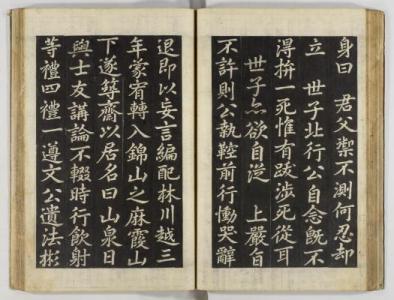 身曰　君父禦不測何忍却
立　世子北行公自念旣不
淂拚一死惟有跋涉死從耳
世子亦欲自從　上嚴旨
不許則公執鞚前行慟哭辭
退即以妄言編配林川越三
年蒙宥轉入錦山之麻霞山
下遂築齋以居名曰山泉日
與士友講論不輟時行飮射
等禮四禮一遵文公遺法彬